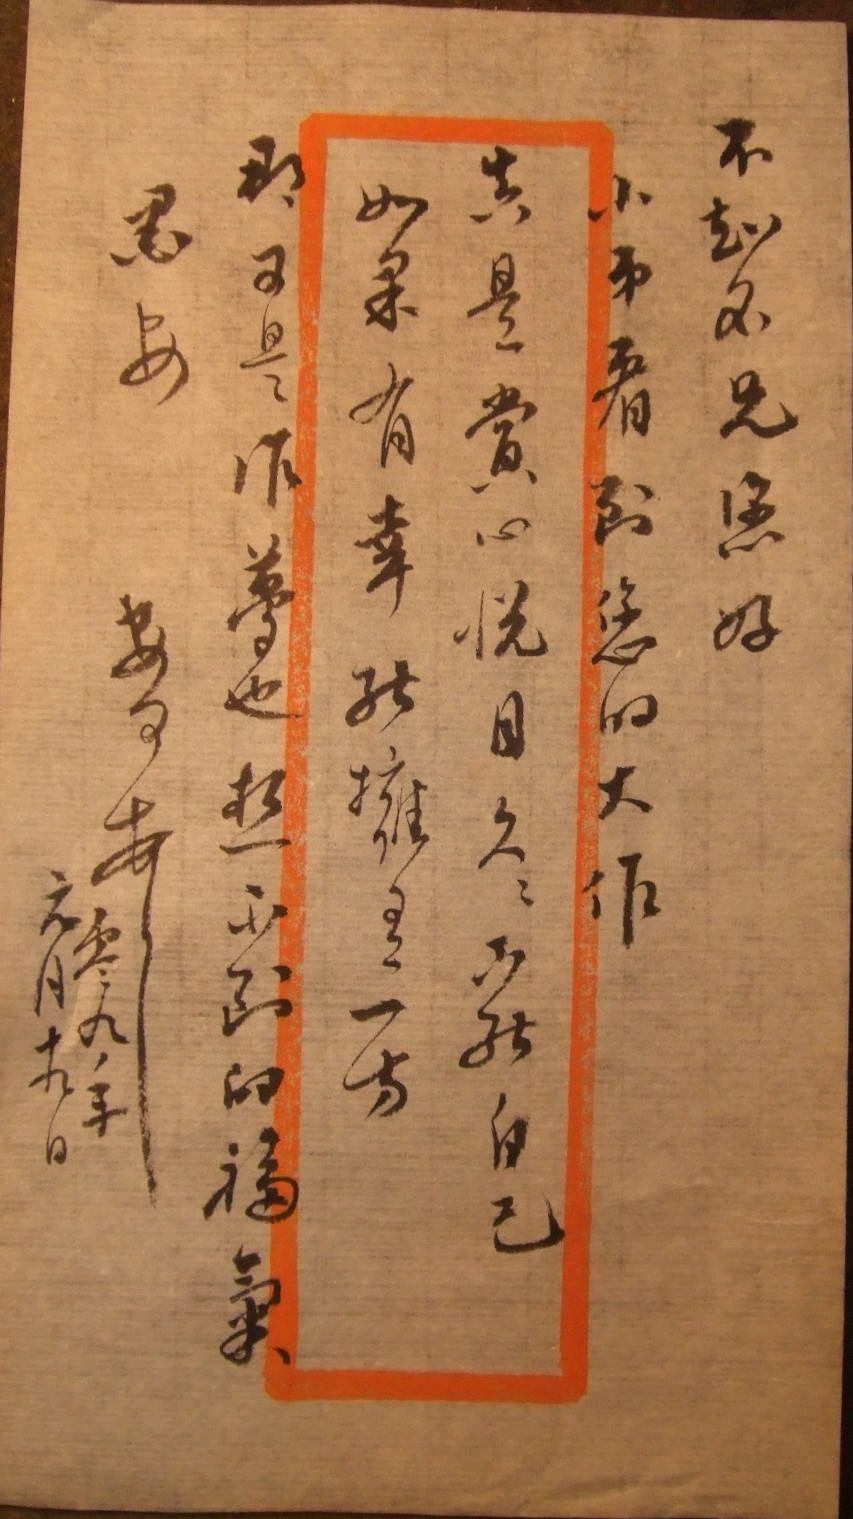 不知名兄您好
小弟看到您的大作
真是賞心悦目久久不能自己
如果有幸能擁有一方
那可是作夢也想不到的福氣
恩安
零九年
元月十九日